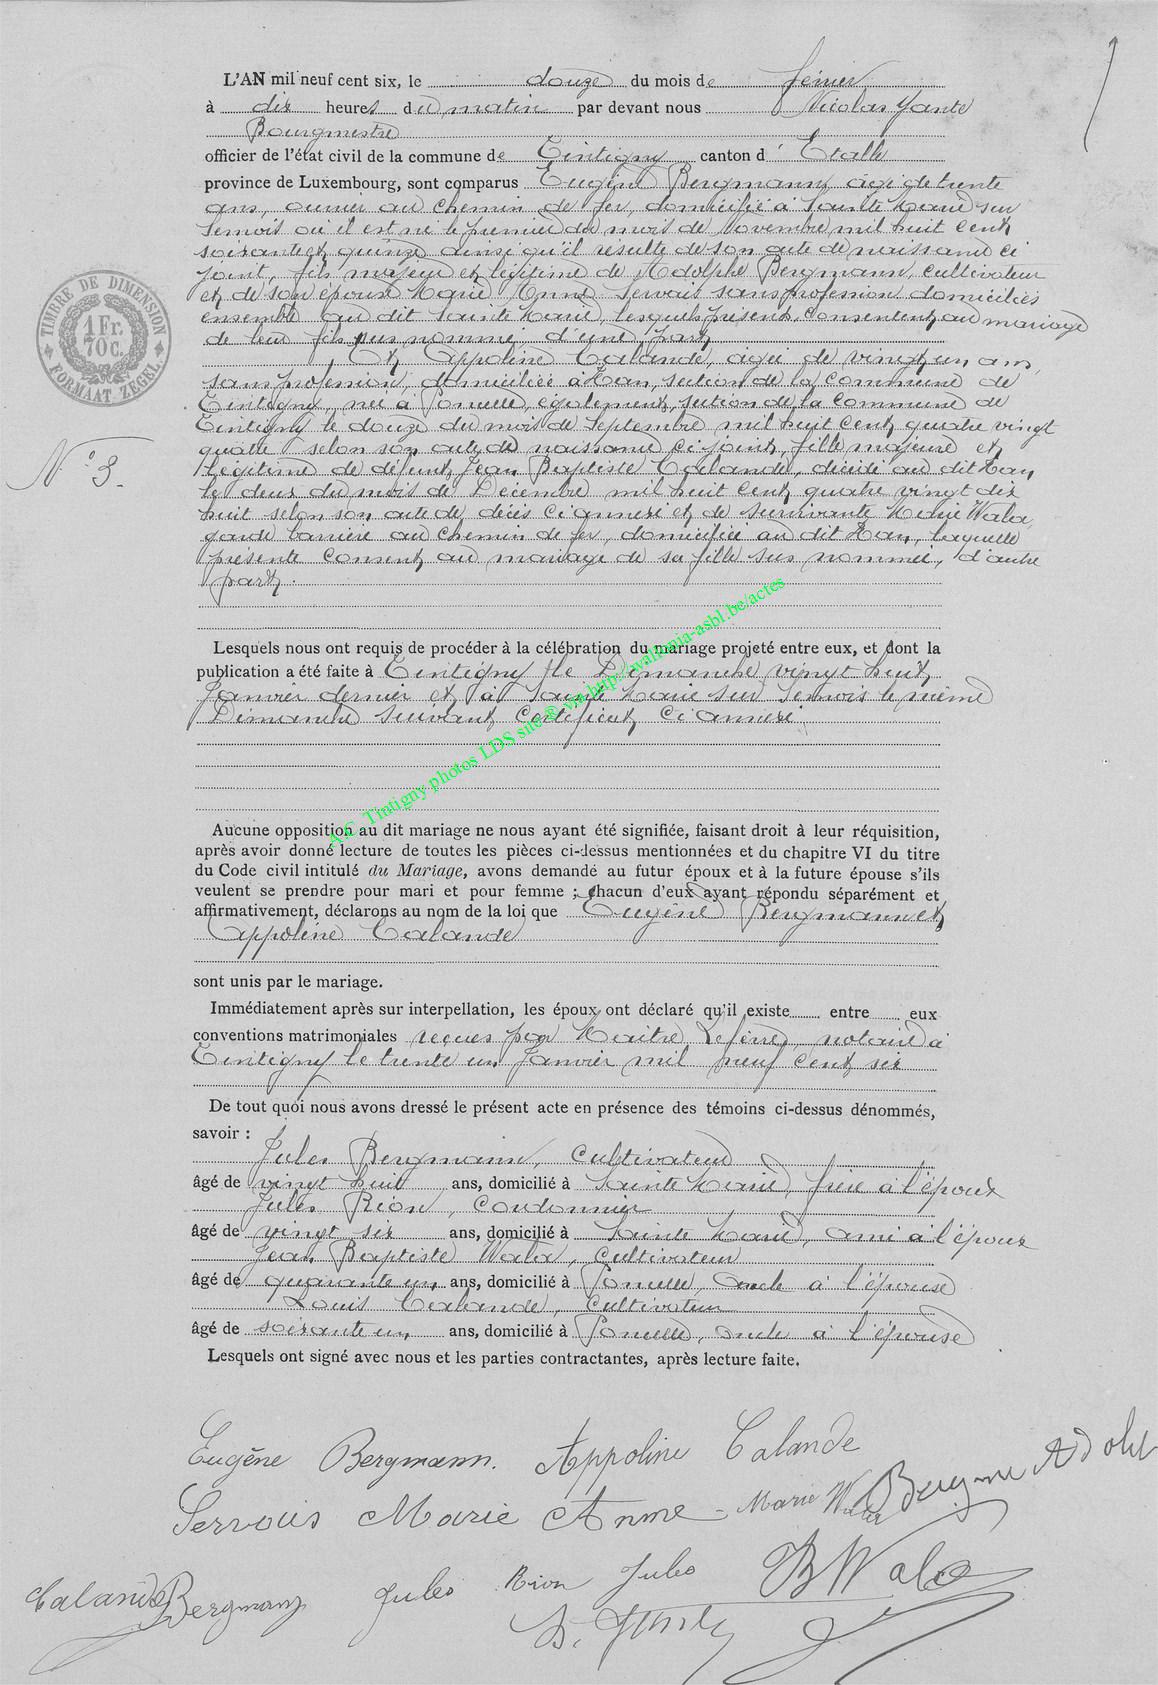 L'AN mil neuf cent six, le douze du mois de février
à dix heures du matin par devant nous Nicolas Yante
Bourgmestre
officier de l'état civil de la commune de Tintigny canton d' Etalle
province de Luxembourg, sont comparus Eugène Bergmann, âgé de trente
ans, ouvrier au chemin de fer, domicilié à Sainte Marie sur
Semois où il est né le premier du mois de Novembre mil huit cent
soixante et quinze ainsi qu'il résulte de son acte de naissance ci
joint, fils majeur et légitime de Adolphe Bergmann, cultivateur
et de son épouse Marie Anne Servais sans profession domiciliés
ensemble au dit Sainte Marie, lesquels présents consentent au mariage
de leur fils sus nommé, d'une part
Et Appoline Calande, âgée de vingt un ans,
sans profession, domiciliée à Han, section de la commune de
Tintigny, née à Poncelle, également section de la commune de
Tintigny le douze du mois de Septembre mil huit cent quatre vingt
quatre selon son acte de naissance ci joint, fille majeure et
légitime de défunt Jean Baptiste Calande, décédé au dit Han,
le deux du mois de Décembre mil huit cent quatre vingt dix
huit selon son acte de décès ci annexé et de survivante Marie Wala,
garde barrière au chemin de fer, domiciliée au dit Han, laquelle
présente consent au mariage de sa fille sus nommée, d'autre
part.
TIMBRE DE DIMENSION
1 Fr.
70 c.
FORMAAT ZEGEL
N° 3.
Lesquels nous ont requis de procéder à la célébration du mariage projeté entre eux, et dont la
publication a été faite à Tintigny le Dimanche vingt huit
Janvier dernier et à Sainte Marie sur Semois le même
Dimanche suivant certificat ci annexé
A.C Tintigny photos LDS site @ via http://wallonia-asbl.be/actes
Aucune opposition au dit mariage ne nous ayant été signifiée, faisant droit à leur réquisition,
après avoir donné lecture de toutes les pièces ci-dessus mentionnées et du chapitre VI du titre
du Code civil intitulé du Mariage, avons demandé au futur époux et à la future épouse s'ils
veulent se prendre pour mari et pour femme ; chacun d'eux ayant répondu séparément et
affirmativement, déclarons au nom de la loi que Eugène Bergmann et
Appoline Calande
sont unis par le mariage.
Immédiatement après sur interpellation, les époux ont déclaré qu'il existe entre eux
conventions matrimoniales reçues par Maître Lefèvre, notaire à
Tintigny le trente un Janvier mil neuf cent six
De tout quoi nous avons dressé le présent acte en présence des témoins ci-dessus dénommés,
savoir :
Jules Bergmann, cultivateur
âgé de vingt huit ans, domicilié à Sainte Marie, frère à l'époux
Jules Rion, cordonnier
âgé de vingt six ans, domicilié à Sainte Marie, ami à l'époux
Jean Baptiste Wala, cultivateur
âgé de quarante un ans, domicilié à Poncelle, oncle à l'épouse
Louis Calande, cultivateur
âgé de soixante un ans, domicilié à Poncelle, oncle à l'épouse
Lesquels ont signé avec nous et les parties contractantes, après lecture faite.
Eugène Bergmann. Appoline Calande
Servais Marie Anne - Marie Wala Bergman Adolph
Calande Bergmann Jules Rion Jules B Wala